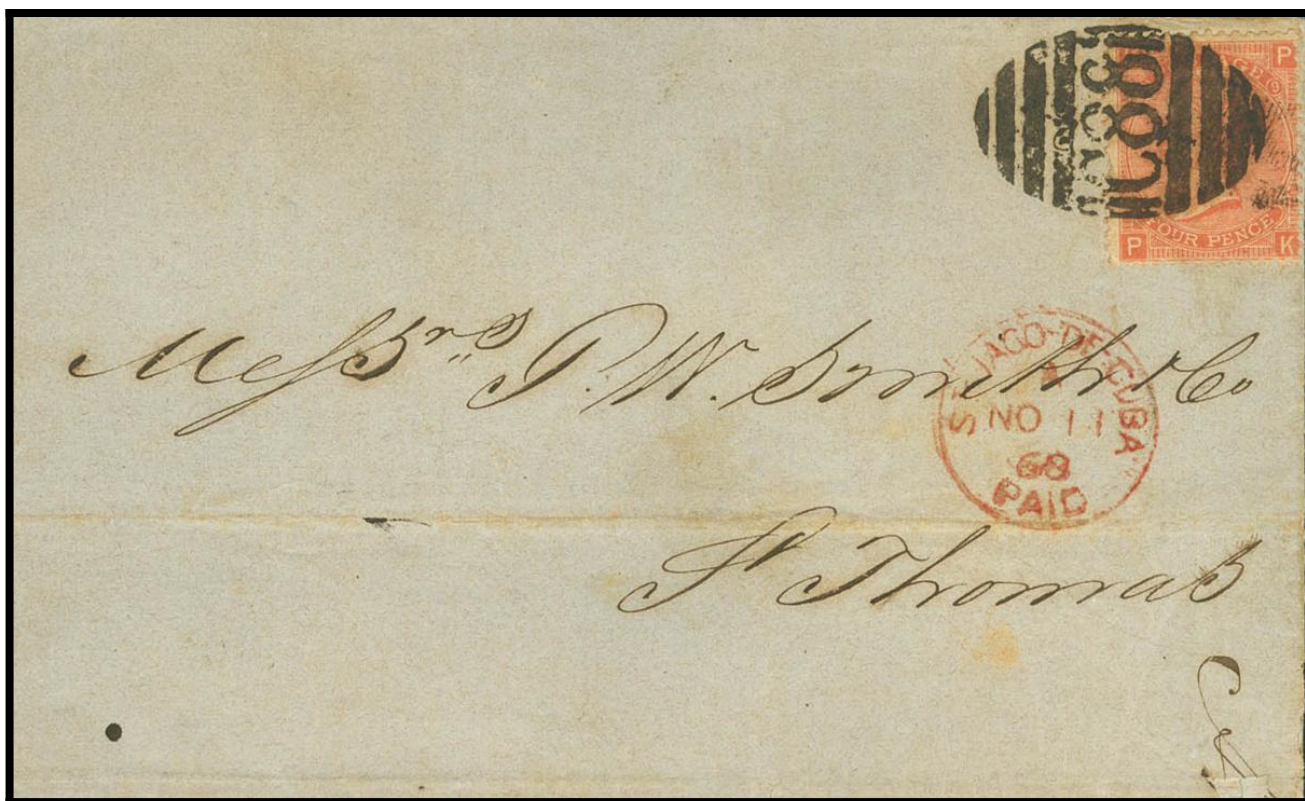 C88
P
GE 9
FOUR PENCE
P K
Messrs. P. W. Smith & Co
ST JAGO-DE-CUBA
A
NO 11
68
PAID
St Thomas